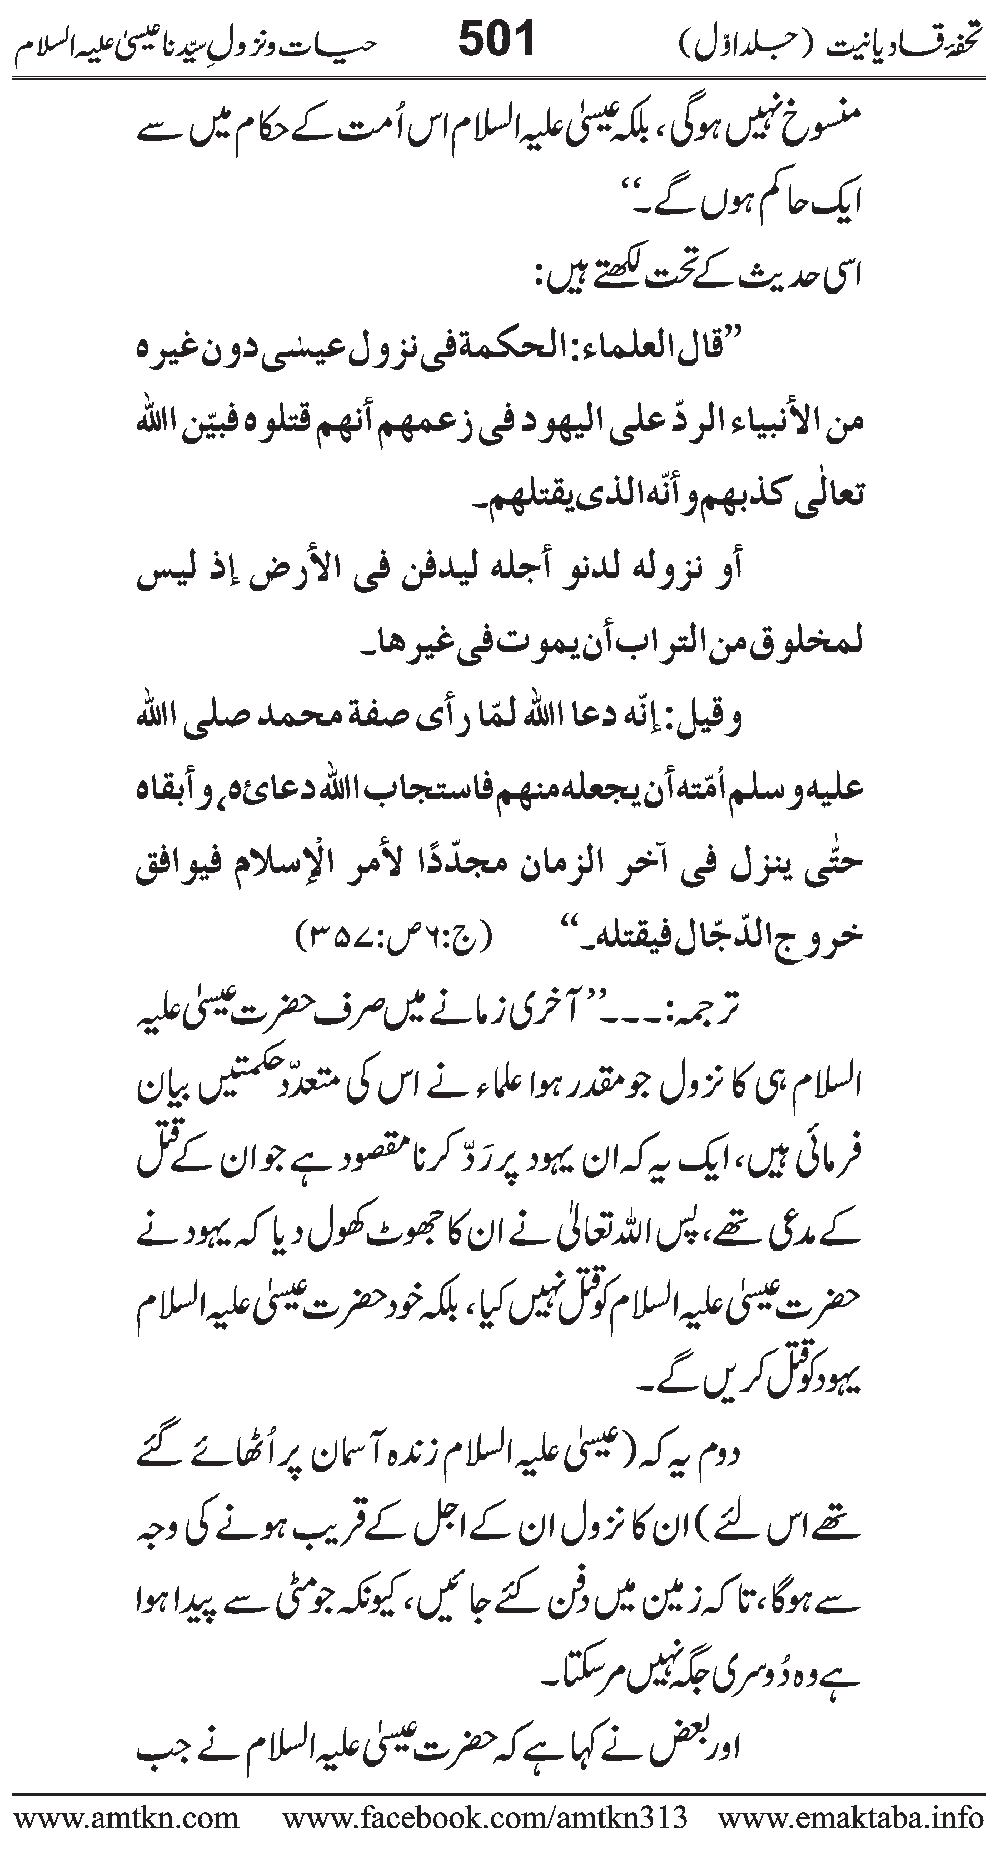 تحفۂ قادیانیت (جلداوّل) 501 حیات ونزولِ سیّدنا عیسیٰ علیہ السلام
منسوخ نہیں ہوگی، بلکہ عیسیٰ علیہ السلام اس اُمت کے حکام میں سے
ایک حاکم ہوں گے۔“
اسی حدیث کے تحت لکھتے ہیں:
”قال العلماء: الحکمة فی نزول عیسٰی دون غیرہ
من الأنبیاء الردّ علی الیہود فی زعمهم أنهم قتلوہ فبیّن اﷲ
تعالٰی کذبهم و أنّه الذی یقتلهم۔
أو نزوله لدنو أجله لیدفن فی الأرض إذ لیس
لمخلوق من التراب أن یموت فی غیرها۔
وقیل: إنّه دعا اﷲ لمّا رأی صفة محمد صلی اﷲ
علیه وسلم اُمّته أن یجعله منهم فاستجاب اﷲ دعائه، وأبقاہ
حتّٰی ینزل فی آخر الزمان مجدّدًا لأمر الْإسلام فیوافق
خروج الدّجّال فیقتله۔“ (ج:۶ ص:۳۵۷)
ترجمہ:۔۔۔”آخری زمانے میں صرف حضرت عیسیٰ علیہ
السلام ہی کا نزول جو مقدر ہوا علماء نے اس کی متعدّد حکمتیں بیان
فرمائی ہیں، ایک یہ کہ ان یہود پر رَدّ کرنا مقصود ہے جو ان کے قتل
کے مدعی تھے، پس اللہ تعالیٰ نے ان کا جھوٹ کھول دیا کہ یہود نے
حضرت عیسیٰ علیہ السلام کو قتل نہیں کیا، بلکہ خود حضرت عیسیٰ علیہ السلام
یہود کو قتل کریں گے۔
دوم یہ کہ (عیسیٰ علیہ السلام زندہ آسمان پر اُٹھائے گئے
تھے اس لئے) ان کا نزول ان کے اجل کے قریب ہونے کی وجہ
سے ہوگا، تاکہ زمین میں دفن کئے جائیں، کیونکہ جو مٹی سے پیدا ہوا
ہے وہ دُوسری جگہ نہیں مرسکتا۔
اور بعض نے کہا ہے کہ حضرت عیسیٰ علیہ السلام نے جب
www.amtkn.com www.facebook.com/amtkn313 www.emaktaba.info